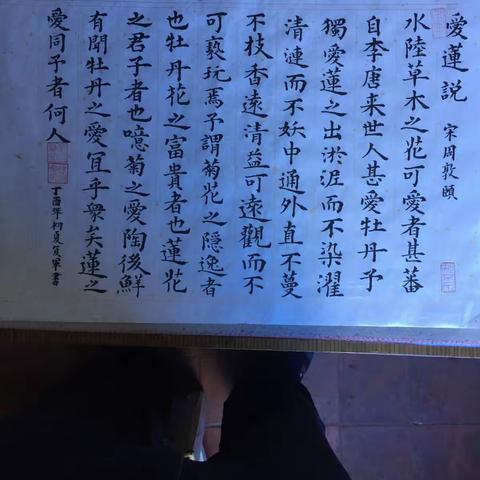 愛蓮説 宋周敦頤
水陸草木之花可愛者甚蕃
自李唐来世人甚愛牡丹予
獨愛蓮之出淤泥而不染濯
清漣而不妖中通外直不蔓
不枝香遠清益可遠觀而不
可褻玩焉予謂菊花之隱逸者
也牡丹花之富貴者也蓮花
之君子者也噫菊之愛陶後鮮
有聞牡丹之愛宜乎衆矣蓮之
愛同予者何人
丁酉年初夏書